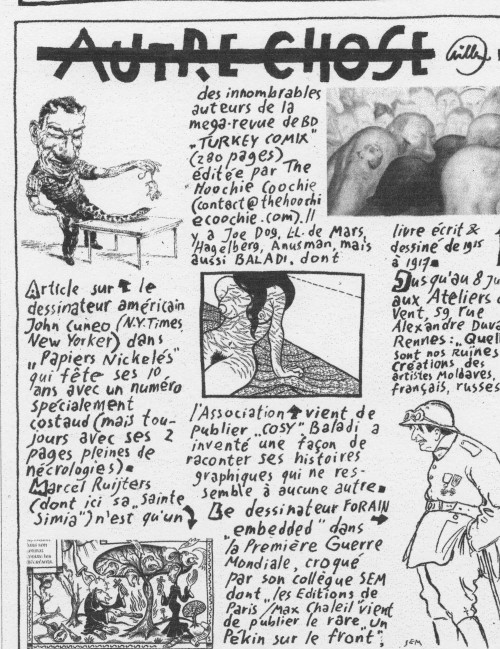 AUTRE CHOSE
Willem
Article sur le
dessinateur américain
John Cuneo (N.Y.Times,
New Yorker) dans
„Papiers Nickelés"
qui fête ses 10
ans avec un numéro
spécialement
costaud (mais tou-
jours avec ses 2
pages pleines de
nécrologies).
Marcel Ruijters
(dont ici sa „Sainte
Simia") n'est qu'un
des innombrables
auteurs de la
mega-revue de BD
„TURKEY COMIX"
(280 pages)
éditée par The
Hoochie Coochie
(contact@thehoochi
ecoochie.com). Il
y a Joe Dog, LL. de Mars,
Hagelberg, Anusman, mais
aussi BALADI, dont
l'Association vient de
publier „COSY" Baladi a
inventé une façon de
raconter ses histoires
graphiques qui ne res-
semble à aucune autre.
Le dessinateur FORAIN
„embedded" dans
la Première Guerre
Mondiale, croqué
par son collègue SEM
dont „les Editions de
Paris/Max Chaleil" vient
de publier le rare „Un
Pékin sur le front",
livre écrit &
dessiné de 1915
à 1917.
Jusqu'au 8 Ju
aux Ateliers d
Vent, 59, rue
Alexandre Duva
Rennes: „Quell
sont nos Ruines
Créations des
artistes Moldaves,
français, russes
SEM